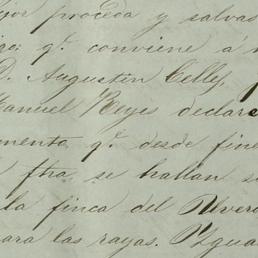 jor proceda y salvas
q.e conviene á
D. Augustin Celly,
Manuel Reyes declare
mento q.e desde fine
ftra se hallan s
la finca del Uver
para las rayas. Ygua